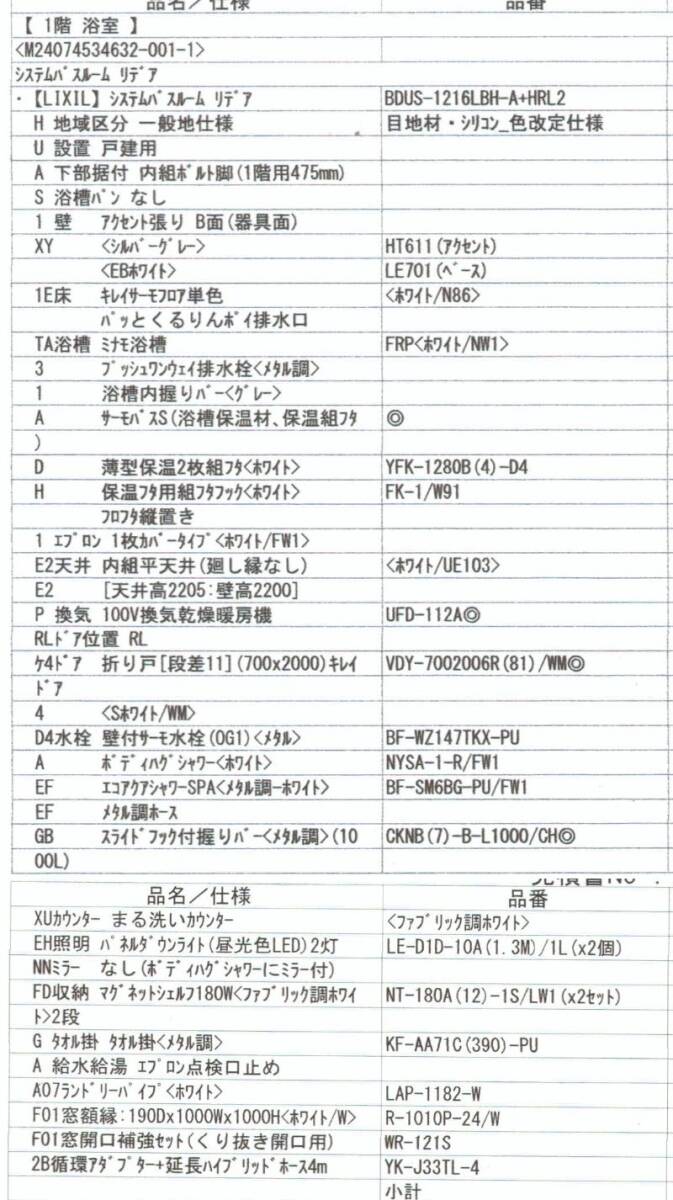 品名／仕様 品番
【 1階 浴室 】
<M24074534632-001-1>
ｼｽﾃﾑﾊﾞｽﾙｰﾑ ﾘﾃﾞｱ
・【LIXIL】ｼｽﾃﾑﾊﾞｽﾙｰﾑ ﾘﾃﾞｱ BDUS-1216LBH-A+HRL2
H 地域区分 一般地仕様 目地材・ｼﾘｺﾝ_色改定仕様
U 設置 戸建用
A 下部据付 内組ﾎﾞﾙﾄ脚(1階用475mm)
S 浴槽ﾊﾟﾝ なし
1 壁 ｱｸｾﾝﾄ張り B面(器具面)
XY <ｼﾙﾊﾞｰｸﾞﾚｰ> HT611(ｱｸｾﾝﾄ)
<EBﾎﾜｲﾄ> LE701(ﾍﾞｰｽ)
1E床 ｷﾚｲｻｰﾓﾌﾛｱ単色 <ﾎﾜｲﾄ/N86>
ﾊﾟｯとくるりんﾎﾟｲ排水口
TA浴槽 ﾐﾅﾓ浴槽 FRP<ﾎﾜｲﾄ/NW1>
3 ﾌﾟｯｼｭﾜﾝｳｪｲ排水栓<ﾒﾀﾙ調>
1 浴槽内握りﾊﾞｰ<ｸﾞﾚｰ>
A ｻｰﾓﾊﾞｽS(浴槽保温材､保温組ﾌﾀ ◎
)
D 薄型保温2枚組ﾌﾀ<ﾎﾜｲﾄ> YFK-1280B(4)-D4
H 保温ﾌﾀ用組ﾌﾀﾌｯｸ<ﾎﾜｲﾄ> FK-1/W91
ﾌﾛﾌﾀ縦置き
1 ｴﾌﾟﾛﾝ 1枚ｶﾊﾞｰﾀｲﾌﾟ<ﾎﾜｲﾄ/FW1>
E2天井 内組平天井(廻し縁なし) <ﾎﾜｲﾄ/UE103>
E2 [天井高2205:壁高2200]
P 換気 100V換気乾燥暖房機 UFD-112A◎
RLﾄﾞｱ位置 RL
ｹ4ﾄﾞｱ 折り戸[段差11](700x2000)ｷﾚｲ VDY-7002006R(81)/WM◎
ﾄﾞｱ
4 <Sﾎﾜｲﾄ/WM>
D4水栓 壁付ｻｰﾓ水栓(OG1)<ﾒﾀﾙ> BF-WZ147TKX-PU
A ﾎﾞﾃﾞｨﾊｸﾞｼｬﾜｰ<ﾎﾜｲﾄ> NYSA-1-R/FW1
EF ｴｺｱｸｱｼｬﾜｰSPA<ﾒﾀﾙ調-ﾎﾜｲﾄ> BF-SM6BG-PU/FW1
EF ﾒﾀﾙ調ﾎｰｽ
GB ｽﾗｲﾄﾞﾌｯｸ付握りﾊﾞｰ<ﾒﾀﾙ調>(10 CKNB(7)-B-L1000/CH◎
00L)
品名／仕様 品番
XUｶｳﾝﾀｰ まる洗いｶｳﾝﾀｰ <ﾌｧﾌﾞﾘｯｸ調ﾎﾜｲﾄ>
EH照明 ﾊﾟﾈﾙﾀﾞｳﾝﾗｲﾄ(昼光色LED)2灯 LE-D1D-10A(1.3M)/1L(x2個)
NNﾐﾗｰ なし(ﾎﾞﾃﾞｨﾊｸﾞｼｬﾜｰにﾐﾗｰ付)
FD収納 ﾏｸﾞﾈｯﾄｼｪﾙﾌ180W<ﾌｧﾌﾞﾘｯｸ調ﾎﾜｲ NT-180A(12)-1S/LW1(x2ｾｯﾄ)
ﾄ>2段
G ﾀｵﾙ掛 ﾀｵﾙ掛<ﾒﾀﾙ調> KF-AA71C(390)-PU
A 給水給湯 ｴﾌﾟﾛﾝ点検口止め
A07ﾗﾝﾄﾞﾘｰﾊﾟｲﾌﾟ<ﾎﾜｲﾄ> LAP-1182-W
F01窓額縁:190Dx1000Wx1000H<ﾎﾜｲﾄ/W> R-1010P-24/W
F01窓開口補強ｾｯﾄ(くり抜き開口用) WR-121S
2B循環ｱﾀﾞﾌﾟﾀｰ+延長ﾊｲﾌﾞﾘｯﾄﾞﾎｰｽ4m YK-J33TL-4
小計